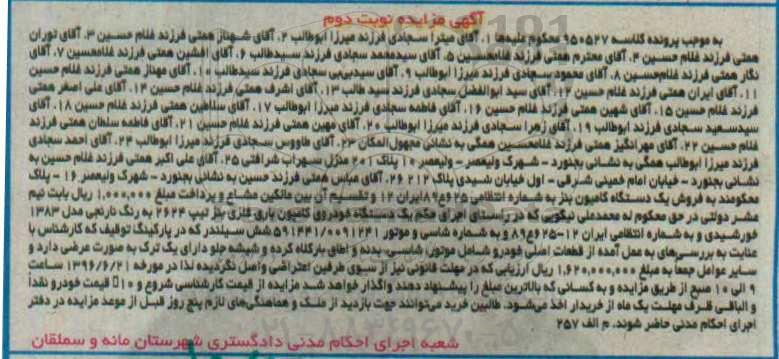 آگهی مزایده نوبت دوم
به موجب پرونده کلاسه ۹۵۰۵۲۷ محکوم علیهما ۱. آقای میترا سجادی فرزند میرزا ابوطالب ۲. آقای شهناز همتی فرزند غلام حسین ۳. آقای توران
همتی فرزند غلام حسین ۴. آقای محترم همتی فرزند غلامحسین ۵. آقای سیدمحمد سجادی فرزند سیدطالب ۶. آقای افشین همتی فرزند غلامحسین ۷. آقای
نگار همتی فرزند غلامحسین ۸. آقای محمود سجادی فرزند میرزا ابوطالب ۹. آقای سیدبی‌بی سجادی فرزند سیدطالب ۱۰. آقای مهناز همتی فرزند غلام حسین
۱۱. آقای ایران همتی فرزند غلام حسین ۱۲. آقای سید ابوالفضل سجادی فرزند سید طالب ۱۳. آقای اشرف همتی فرزند غلام حسین ۱۴. آقای علی اصغر همتی
فرزند غلام حسین ۱۵. آقای شهین همتی فرزند غلام حسین ۱۶. آقای فاطمه سجادی فرزند میرزا ابوطالب ۱۷. آقای سلاطین همتی فرزند غلام حسین ۱۸. آقای
سیدسعید سجادی فرزند ابوطالب ۱۹. آقای زهرا سجادی فرزند میرزا ابوطالب ۲۰. آقای مهین همتی فرزند غلام حسین ۲۱. آقای فاطمه سلطان همتی فرزند
غلام حسین ۲۲. آقای مهرانگیز همتی فرزند غلامحسین همگی به نشانی مجهول‌المکان ۲۳. آقای طاووس سجادی فرزند میرزا ابوطالب ۲۴. آقای احمد سجادی
فرزند میرزا ابوطالب همگی به نشانی بجنورد - شهرک ولیعصر - ولیعصر ۱۰ پلاک ۲۰ منزل سهراب شرافتی ۲۵. آقای علی اکبر همتی فرزند غلام حسین به
نشانی بجنورد - خیابان امام خمینی شرقی - اول خیابان شهیدی پلاک ۲۱۲ ۲۶. آقای عباس همتی فرزند حسین به نشانی بجنورد - شهرک ولیعصر ۱۶ - پلاک
محکومند به فروش یک دستگاه کامیون بنز به شماره انتظامی ۶۲۵ع۸۹ایران ۱۲ و تقسیم آن بین مالکین مشاع و پرداخت مبلغ ۱,۰۰۰,۰۰۰ ریال بابت نیم
عشر دولتی در حق محکوم له محمدعلی نیکویی که در راستای اجرای حکم یک دستگاه خودروی کامیون باری فلزی بنز تیپ ۲۶۲۴ به رنگ نارنجی مدل ۱۳۸۳
خورشیدی و به شماره انتظامی ایران ۱۲-۶۲۵ع۸۹ و به شماره شاسی و موتور ۵۹۱۴۴۱/۰۰۹۱۲۴۱ شش سیلندر که در پارکینگ توقیف که کارشناس با
عنایت به بررسی‌های به عمل آمده از قطعات اصلی خودرو شامل موتور، شاسی، بدنه و اطاق بارگاه کرده و شیشه جلو دارای یک ترک به صورت عرضی دارد و
سایر عوامل جمعا به مبلغ ۱,۶۲۰,۰۰۰,۰۰۰ ریال ارزیابی که در مهلت قانونی نیز از سوی طرفین اعتراضی واصل نگردیده لذا در مورخه ۱۳۹۶/۶/۲۱ ساعت
۹ الی ۱۰ صبح از طریق مزایده و به کسانی که بالاترین مبلغ را پیشنهاد دهند واگذار خواهد شد مزایده از قیمت کارشناسی شروع و ۱۰٪ قیمت خودرو نقداً
و الباقی ظرف مهلت یک ماه از خریدار اخذ می‌شود. طالبین خرید می‌توانند جهت بازدید از ملک و هماهنگی‌های لازم پنج روز قبل از موعد مزایده در دفتر
اجرای احکام مدنی حاضر شوند. م الف ۲۵۷
شعبه اجرای احکام مدنی دادگستری شهرستان مانه و سملقان